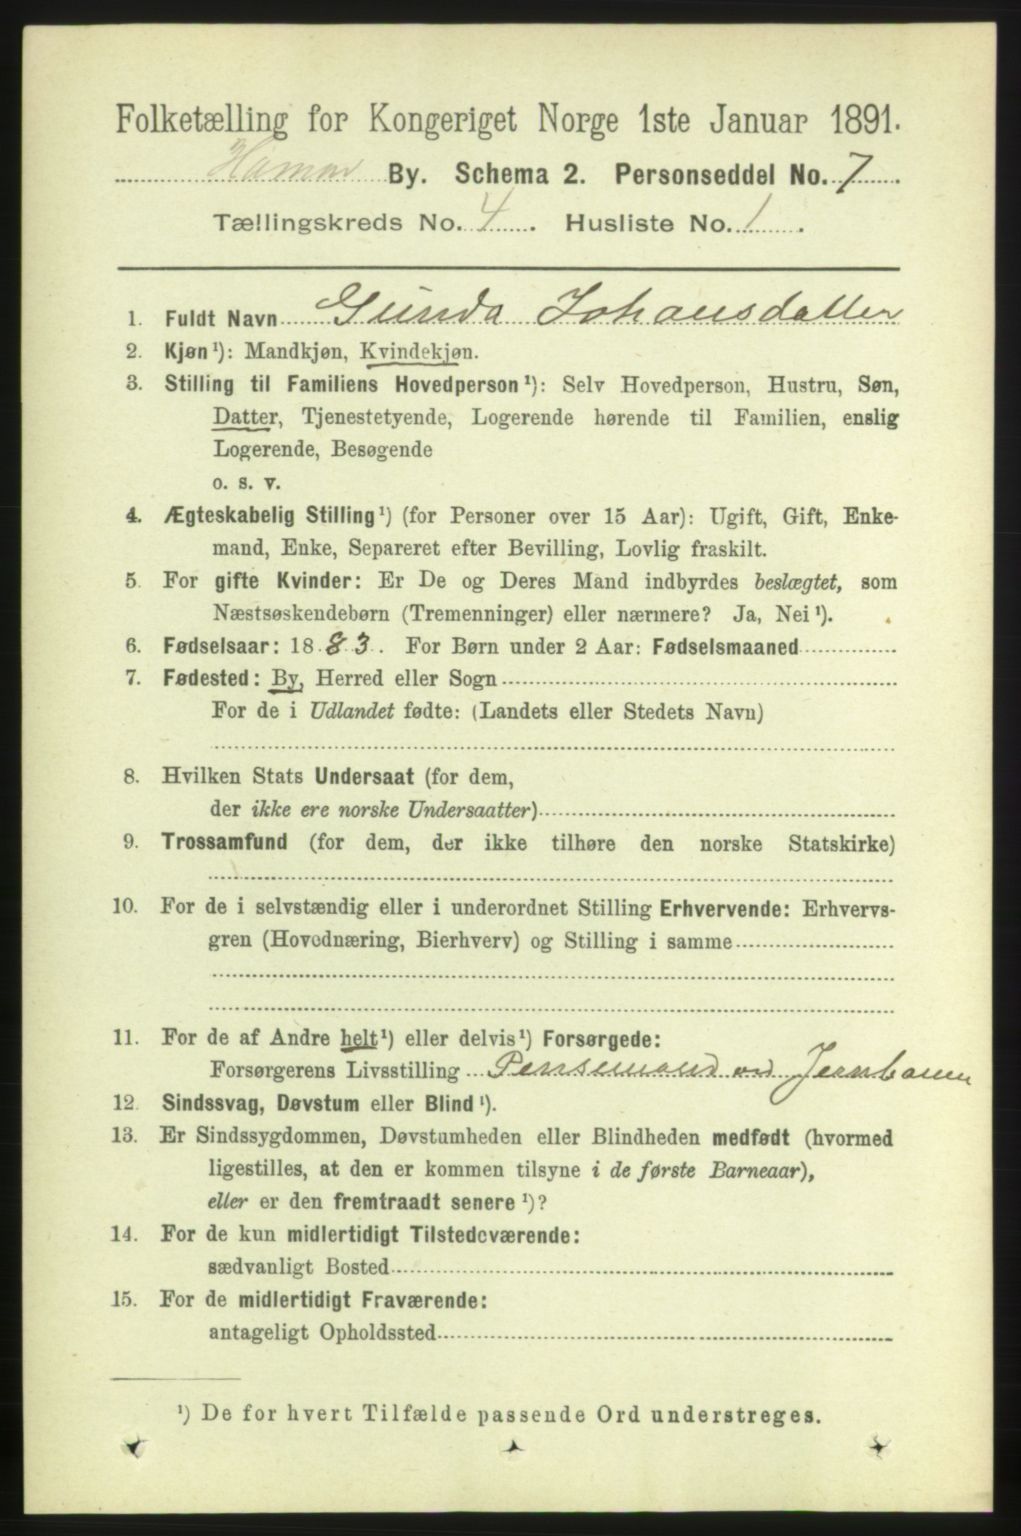 Folketælling for Kongeriget Norge 1ste Januar 1891.
Hamar By. Schema 2. Personseddel No. 7
Tællingskreds No. 4. Husliste No. 1.
1. Fuldt Navn Gunda Johansdatter
2. Kjøn¹): Mandkjøn, Kvindekjøn.
3. Stilling til Familiens Hovedperson¹): Selv Hovedperson, Hustru, Søn,
Datter, Tjenestetyende, Logerende hørende til Familien, enslig
Logerende, Besøgende
o. s. v.
4. Ægteskabelig Stilling¹) (for Personer over 15 Aar): Ugift, Gift, Enke-
mand, Enke, Separeret efter Bevilling, Lovlig fraskilt.
5. For gifte Kvinder: Er De og Deres Mand indbyrdes beslægtet, som
Næstsøskendebørn (Tremenninger) eller nærmere? Ja, Nei¹).
6. Fødselsaar: 1883. For Børn under 2 Aar: Fødselsmaaned
7. Fødested: By, Herred eller Sogn
For de i Udlandet fødte: (Landets eller Stedets Navn)
8. Hvilken Stats Undersaat (for dem,
der ikke ere norske Undersaatter)
9. Trossamfund (for dem, der ikke tilhøre den norske Statskirke)
10. For de i selvstændig eller i underordnet Stilling Erhvervende: Erhvervs-
gren (Hovednæring, Bierhverv) og Stilling i samme
11. For de af Andre helt¹) eller delvis¹) Forsørgede:
Forsørgerens Livsstilling Pensemand ved Jernbanen
12. Sindssvag, Døvstum eller Blind¹).
13. Er Sindssygdommen, Døvstumheden eller Blindheden medfødt (hvormed
ligestilles, at den er kommen tilsyne i de første Barneaar),
eller er den fremtraadt senere¹)?
14. For de kun midlertidigt Tilstedeværende:
sædvanligt Bosted
15. For de midlertidigt Fraværende:
antageligt Opholdssted
¹) De for hvert Tilfælde passende Ord understreges.